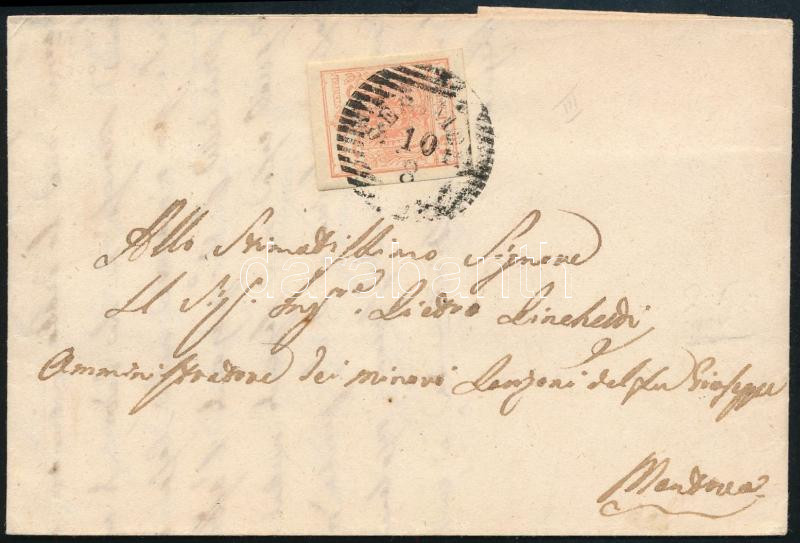 10
8
Allo Stimatissimo Signore
Il Sig. Ing.re Pietro
Amministratore dei minori Lanzoni del fu Giuseppe
Mantova
darabanth
III